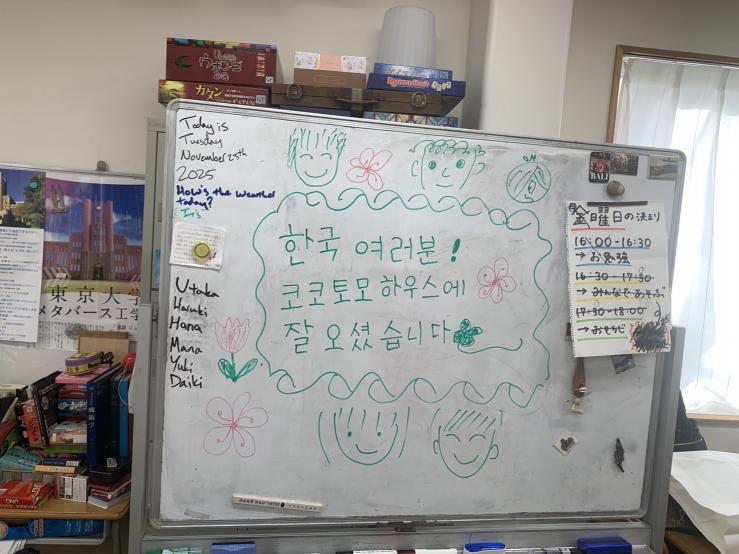 ウボンゴ
カタン
CATAN
Rummikub
Today is
Tuesday
November 25th
2025
How's the weather
today?
It's
Utaka
Haruki
Hana
Mana
Yuki
Daiki
한국 여러분!
코코토모하우스에
잘 오셨습니다
BALI
金曜日の決まり
16:00-16:30
→お勉強
16:30-17:30
→みんなであそぶ
17:30-18:00
→おそうじ
東京大学
メタバース工学
魔術学
UNO